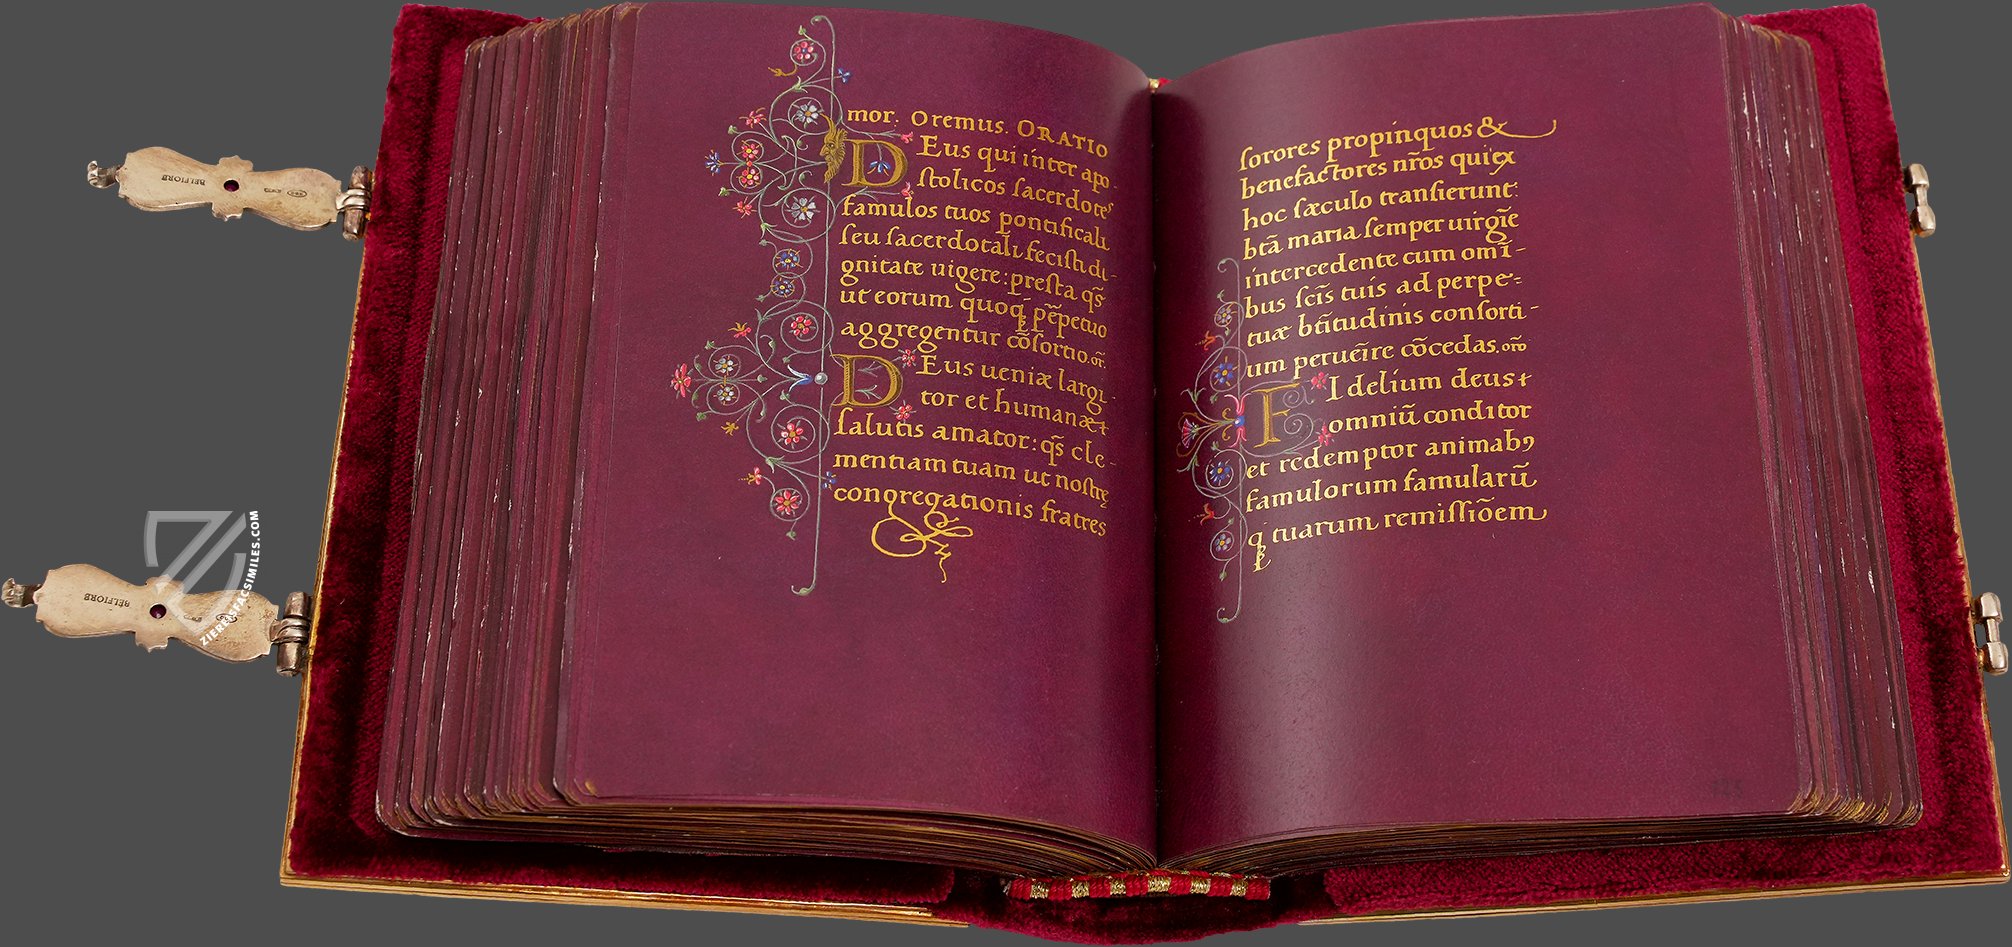 mor. Oremus. ORATIO
DEus qui inter apo-
stolicos sacerdotes
famulos tuos pontificali
seu sacerdotali fecisti di-
gnitate uigere: presta qs̄
ut eorum quoqꝫ ꝑpetuo
aggregentur cōsortio. or̄.
DEus ueniæ largi-
tor et humanæ
salutis amator: qs̄ cle-
mentiam tuam ut nostrę
congregationis fratres
sorores propinquos &
benefactores nr̄os qui ex
hoc sæculo transierunt:
btā maria semper uirgīe
intercedente cum omī-
bus scīs tuis ad perpe-
tuæ btītudinis consorti-
um peruēire cōcedas. orō
FIdelium deus
omniū conditor
et redemptor animabꝫ
famulorum famularū
qꝫ tuarum remissiōem
BELFIORE
BELFIORE
ZIEREISFACSIMILES.COM